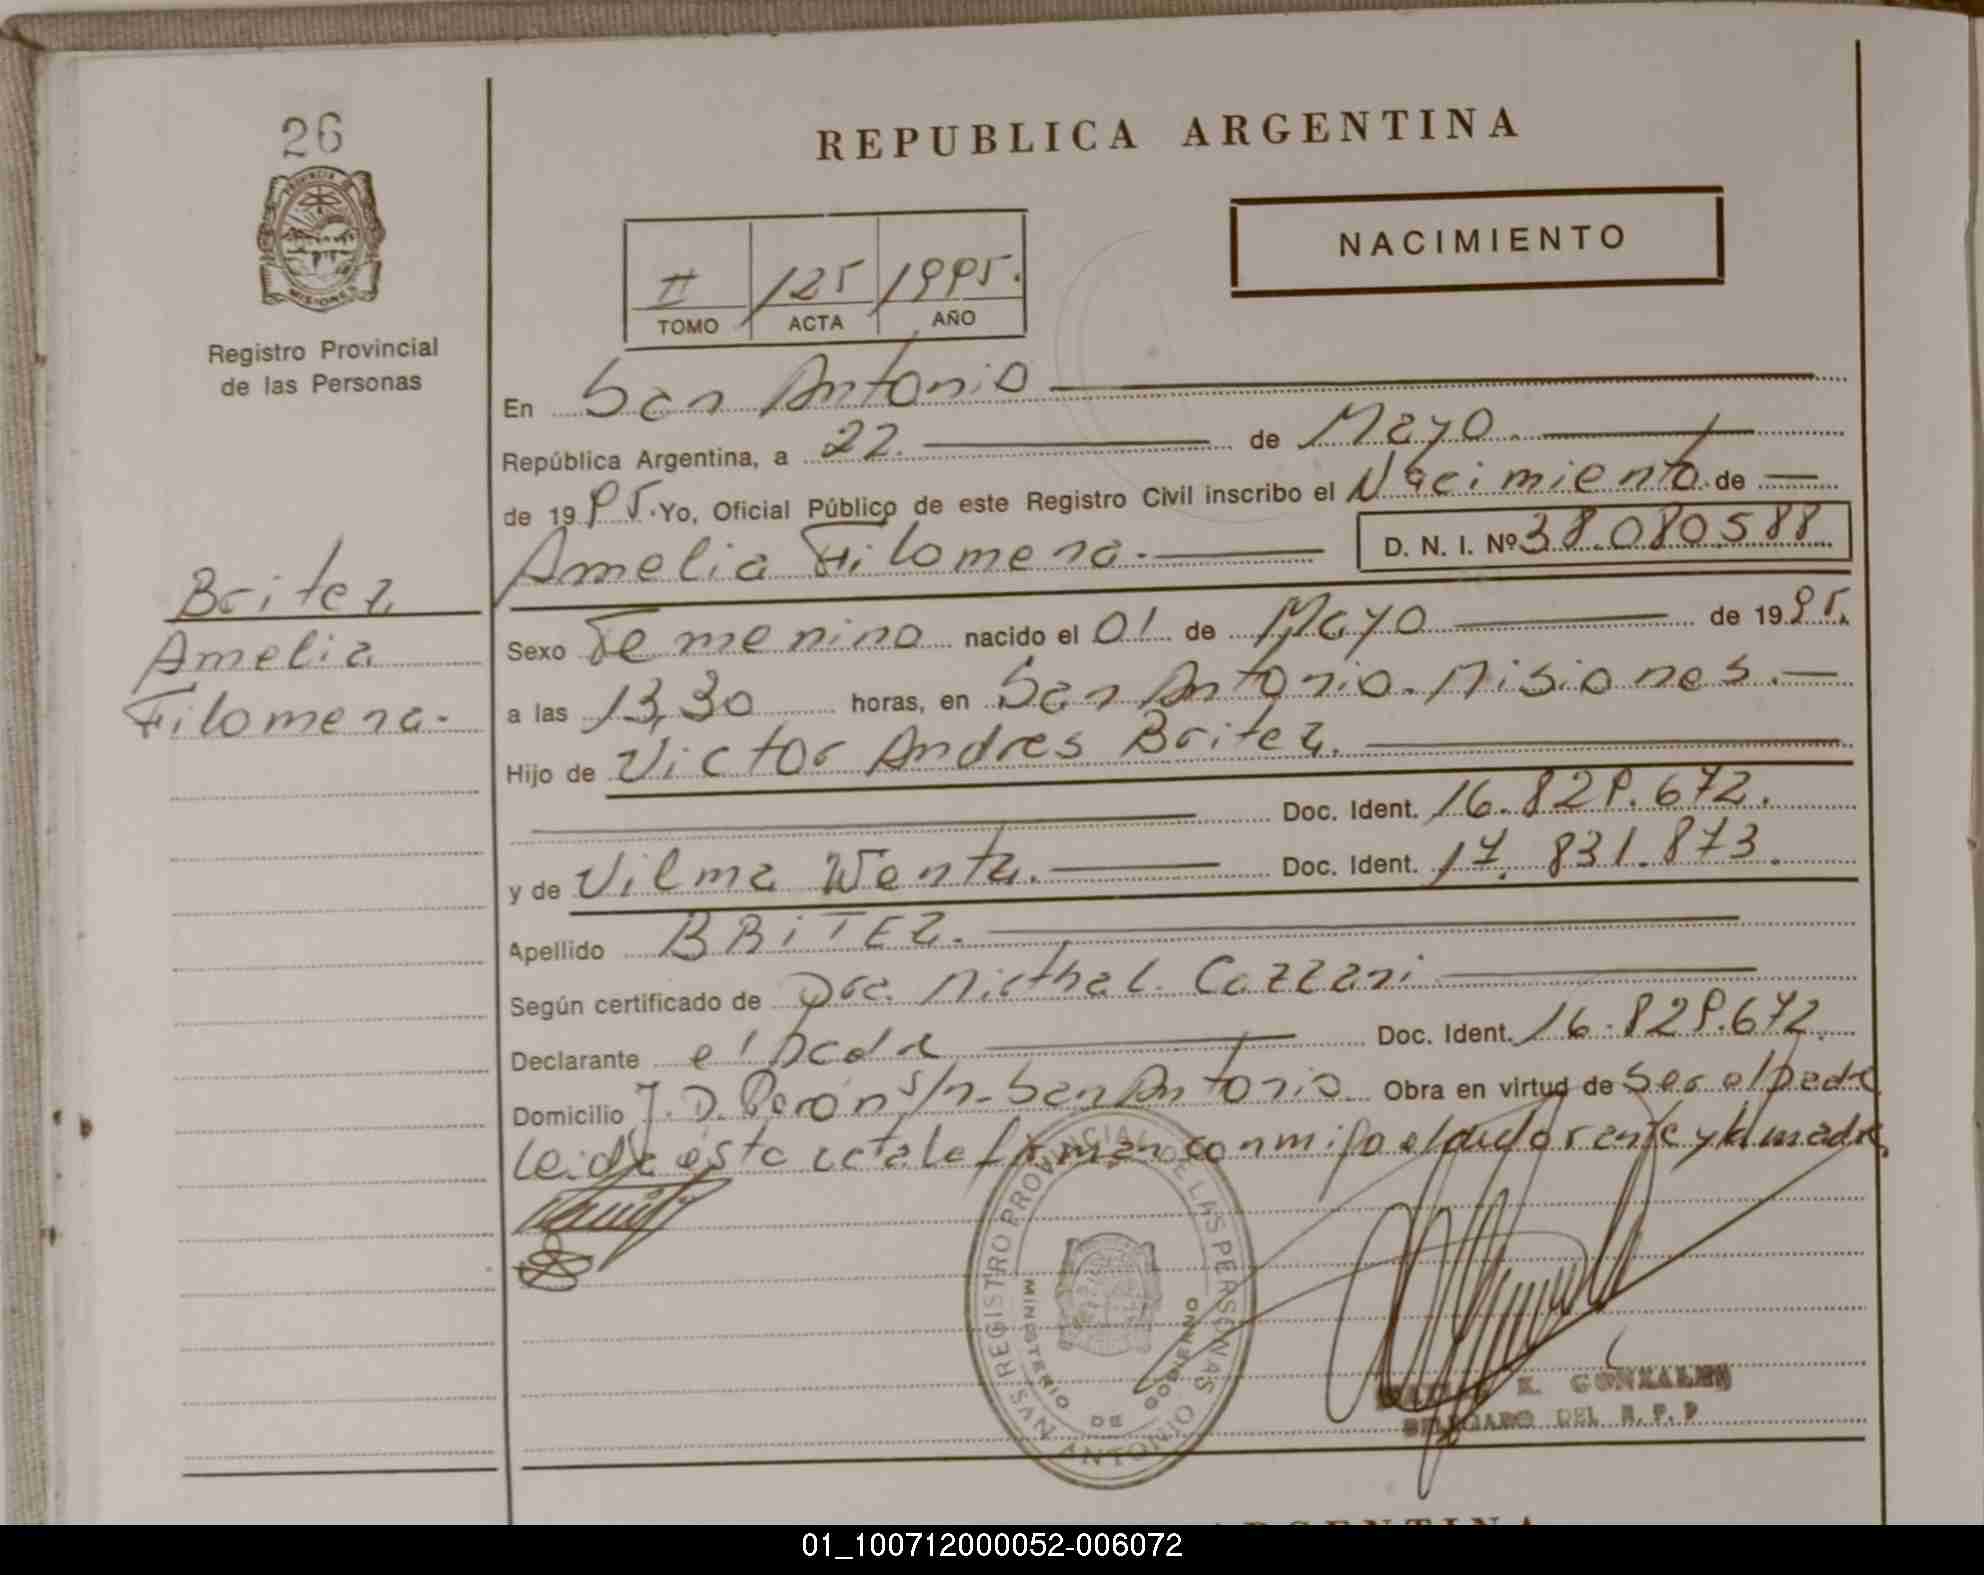 26
PROVINCIA DE
MISIONES
Registro Provincial
de las Personas
REPUBLICA ARGENTINA
NACIMIENTO
II 125 1995.
TOMO ACTA AÑO
En San Antonio
República Argentina, a 22. de Mayo.
de 1995. Yo, Oficial Público de este Registro Civil inscribo el Nacimiento de
Amelia Filomena. D. N. I. Nº 38.080588
Britez
Amelia
Filomena.
Sexo Femenino nacido el 01 de Mayo de 1995.
a las 13,30 horas, en San Antonio. Misiones.
Hijo de Victor Andres Britez.
Doc. Ident. 16.829.672.
y de Vilma Wenta. Doc. Ident. 17.831.873.
Apellido BRITEZ.
Según certificado de Dra. Cazzari
Declarante el Padre Doc. Ident. 16.829.672.
Domicilio J. D. Perón s/n - San Antonio Obra en virtud de Ser el Padre
Leida esta acta la firman conmigo el declarante y la madre
REGISTRO PROVINCIAL DE LAS PERSONAS
MINISTERIO DE GOBIERNO
SAN ANTONIO
K. GONZALEZ
DELEGADO DEL R. P. P
ARGENTINA
01_100712000052-006072